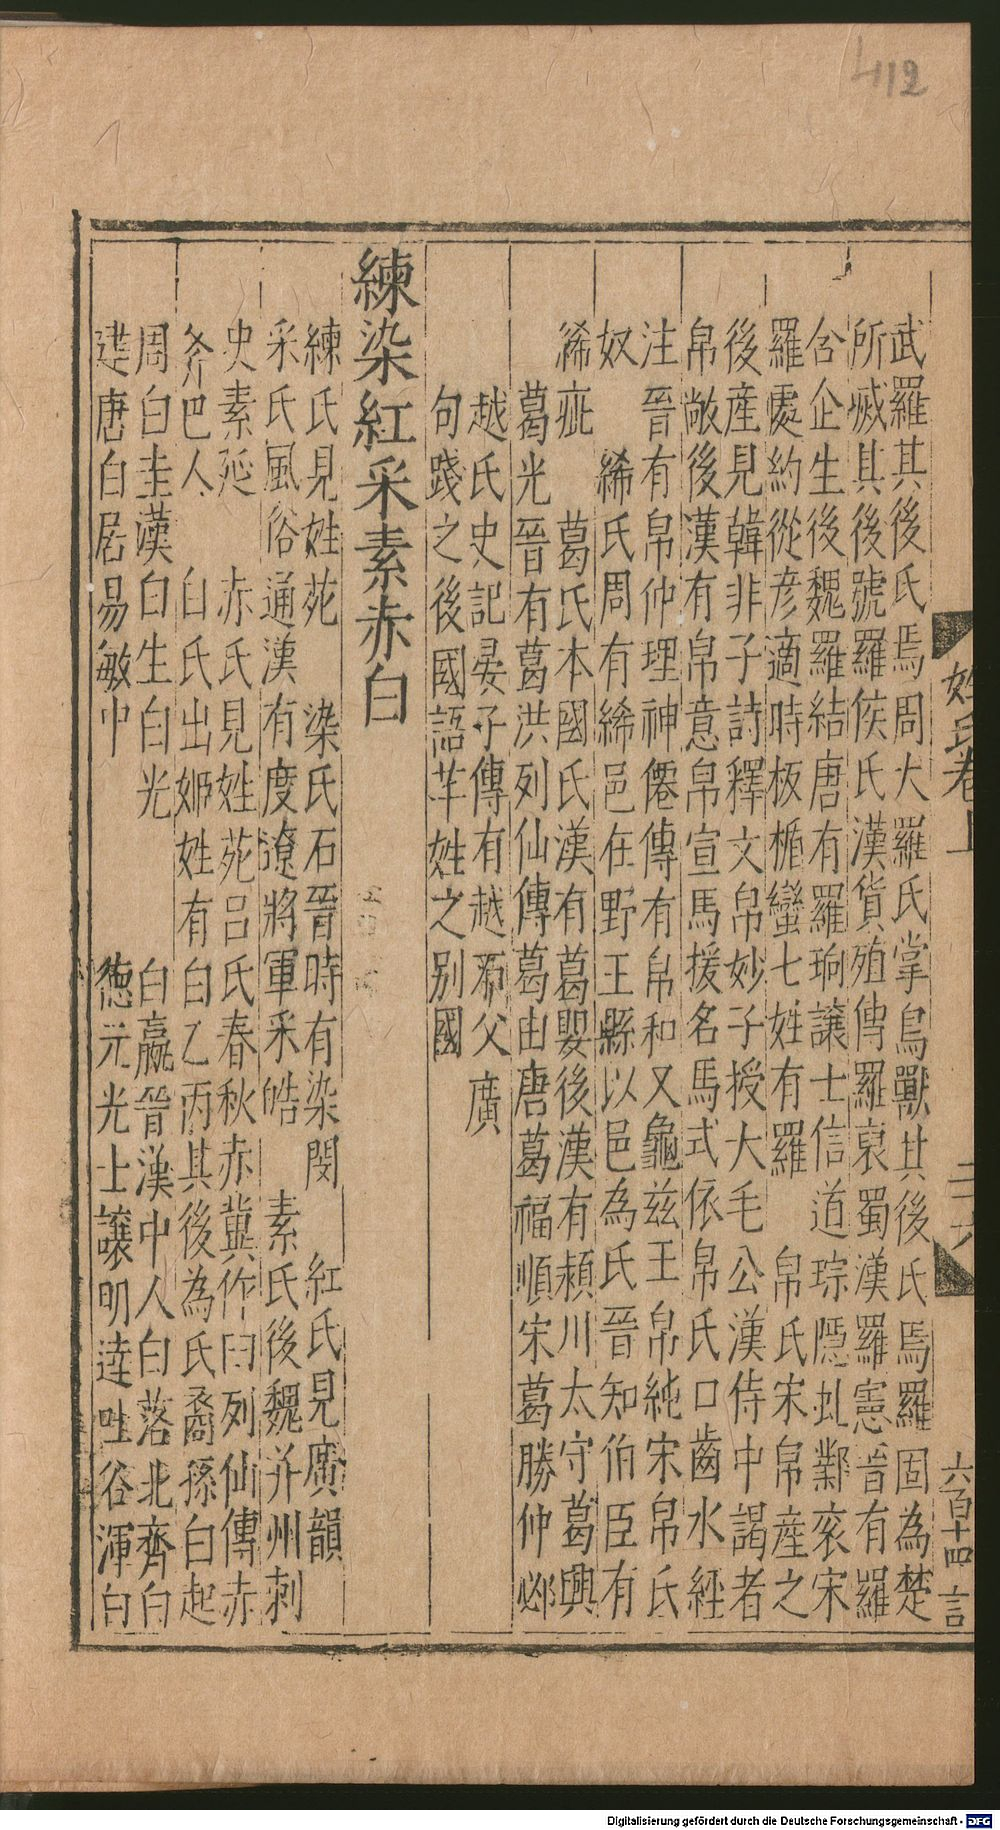 412
姓氏卷上
二十六
六百十四言
武羅其後氏焉周大羅氏掌鳥獸其後氏焉羅固為楚
所滅其後號羅侯氏漢貨殖傳羅裒蜀漢羅憲晉有羅
含企生後魏羅結唐有羅珦讓士信道琮隱虬鄴衮宋
羅處約從彥適時板楯蠻七姓有羅 帛氏宋帛産之
後産見韓非子詩釋文帛妙子授大毛公漢侍中謁者
帛敞後漢有帛意帛宣馬援名馬式依帛氏口齒水經
注晉有帛仲理神僊傳有帛和又龜兹王帛純宋帛氏
奴 絺氏周有絺邑在野王縣以邑為氏晉知伯臣有
絺疵 葛氏本國氏漢有葛嬰後漢有潁川太守葛興
葛光晉有葛洪列仙傳葛由唐葛福順宋葛勝仲邲
越氏史記晏子傳有越石父 廣
句踐之後國語芊姓之别國
練染紅采素赤白
練氏見姓苑 染氏石晉時有染閔 紅氏見廣韻
采氏風俗通漢有度遼將軍采皓 素氏後魏并州刺
史素延 赤氏見姓苑吕氏春秋赤冀作臼列仙傳赤
斧巴人 白氏出姬姓有白乙丙其後為氏裔孫白起
周白圭漢白生白光 白嬴晉漢中人白落北齊白
建唐白居易敏中 德元光士讓明達吐谷渾白
Digitalisierung gefördert durch die Deutsche Forschungsgemeinschaft - DFG